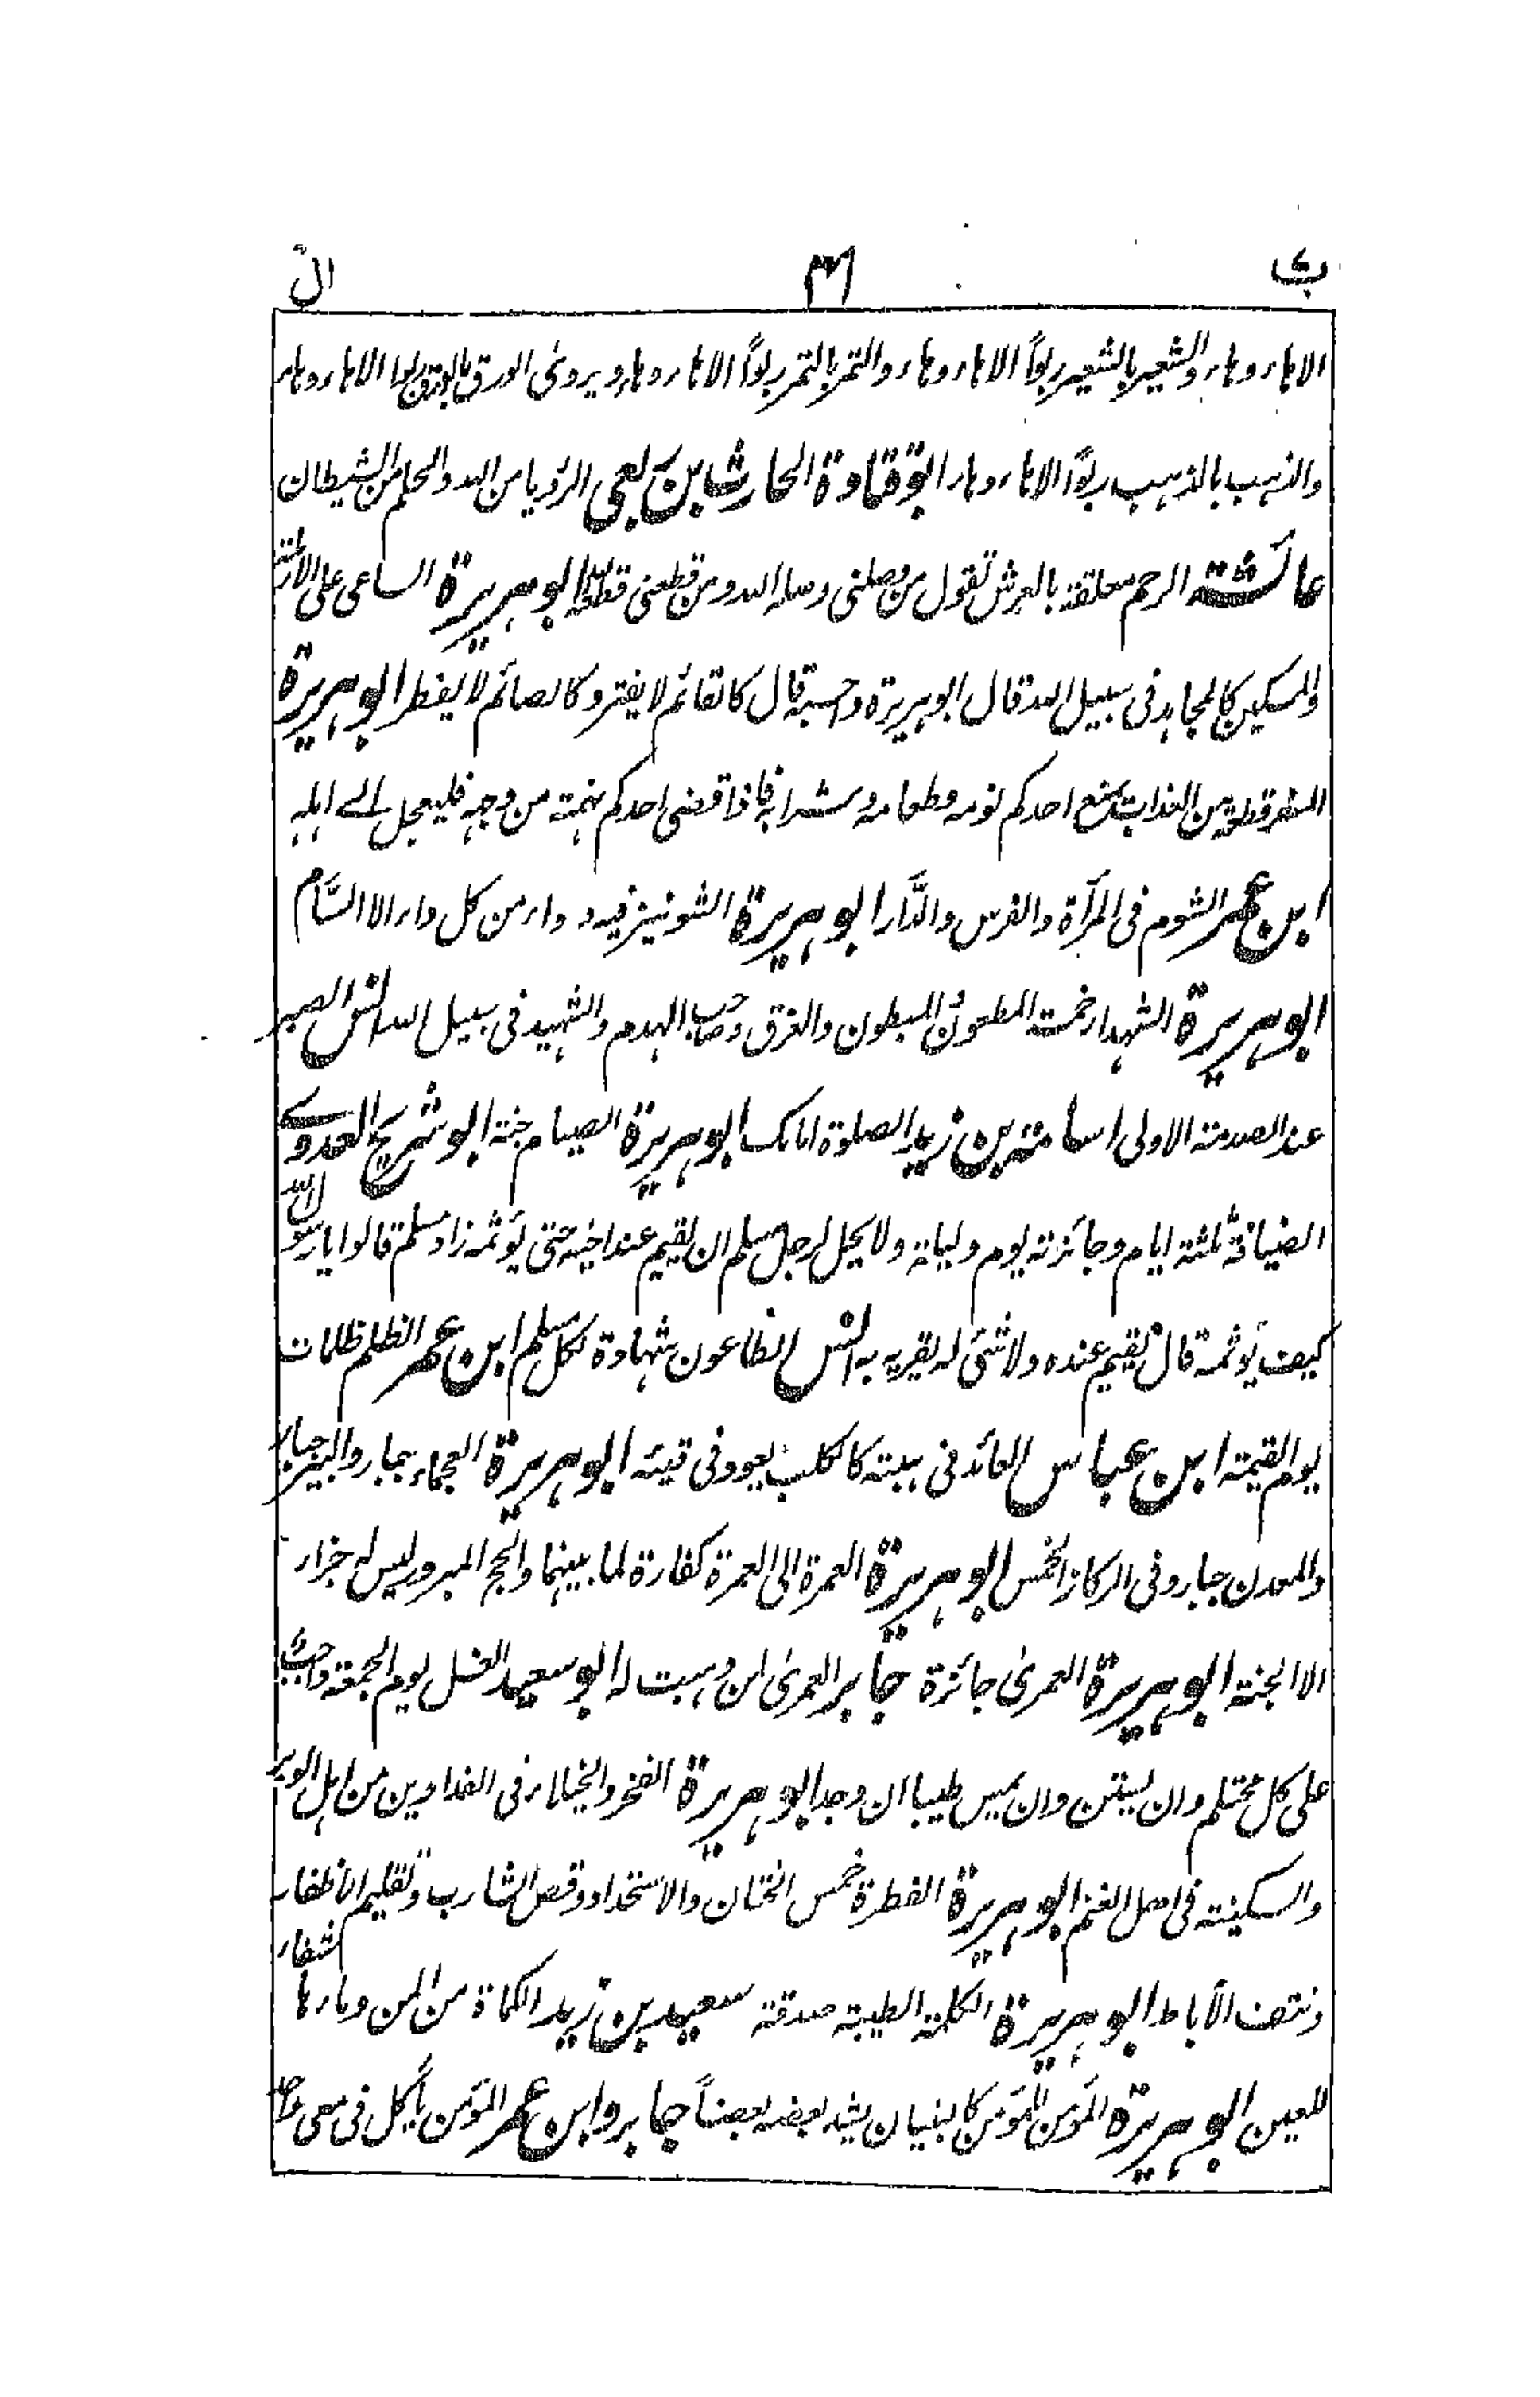 ب ٣٦ ال
الا هاء وهاء والشعير بالشعير ربوًا الا هاء وهاء والتمر بالتمر ربوًا الا هاء وهاء ويروى الورق بالورق ربوا الا هاء وهاء
والذهب بالذهب ربوًا الا هاء وهاء ابو قتادة الحارث بن ربعي الرؤيا من الله والحلم من الشيطان
عائشة الرحم معلقة بالعرش تقول من وصلني وصله الله ومن قطعني قطعه الله ابو هريرة الساعي على الارملة
والمسكين كالمجاهد في سبيل الله قال ابو هريرة واحسبه قال كالقائم لا يفتر وكالصائم لا يفطر ابو هريرة
السفر قطعة من العذاب يمنع احدكم نومه وطعامه وشرابه فاذا قضى احدكم نهمته من وجهه فليعجل الى اهله
ابن عمر الشوم في المرأة والفرس والدّار ابو هريرة الشونيز فيه دواء من كل داء الا السَّام
ابو هريرة الشهداء خمسة المطعون المبطون والغرق وصاحب الهدم والشهيد في سبيل الله انس الصبر
عند الصدمة الاولى اسامة بن زيد الصلوة امامك ابو هريرة الصيام جنة ابو شريح العدوي
الضيافة ثلثة ايام وجائزته يوم وليلة ولا يحل لرجل مسلم ان يقيم عند اخيه حتى يؤثمه زاد مسلم قالوا يا رسول الله
كيف يؤثمه قال يقيم عنده ولا شئ له يقريه به انس الطاعون شهادة لكل مسلم ابن عمر الظلم ظلمات
يوم القيمة ابن عباس العائد في هبته كالكلب يعود في قيئه ابو هريرة العجماء جبار والبير جبار
والمعدن جبار وفي الركاز الخمس ابو هريرة العمرة الى العمرة كفارة لما بينهما والحج المبرور ليس له جزاء
الا الجنة ابو هريرة العمرى جائزة جابر العمرى لمن وهبت له ابو سعيد الغسل يوم الجمعة واجب
على كل محتلم وان يستن وان يمس طيبا ان وجد ابو هريرة الفخر والخيلاء في الفدادين من اهل الوبر
والسكينة في اهل الغنم ابو هريرة الفطرة خمس الختان والاستحداد وقص الشارب وتقليم الاظفار
ونتف الآباط ابو هريرة الكلمة الطيبة صدقة سعيد بن زيد الكماة من المن وماءها شفاء
للعين ابو هريرة المؤمن للمؤمن كالبنيان يشد بعضه بعضاً جابر وابن عمر المؤمن يأكل في معى واحد